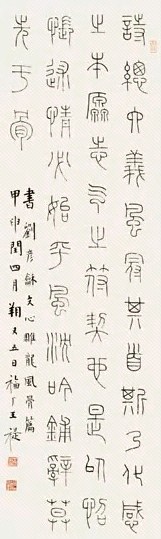 詩總六義風冠其首斯乃化感
之本原志气之符契也是以怊
悵述情必始乎風沈吟鋪辭莫
先于骨
書劉彥龢文心雕龍風骨篇
甲申閏四月朔又五日福厂王禔